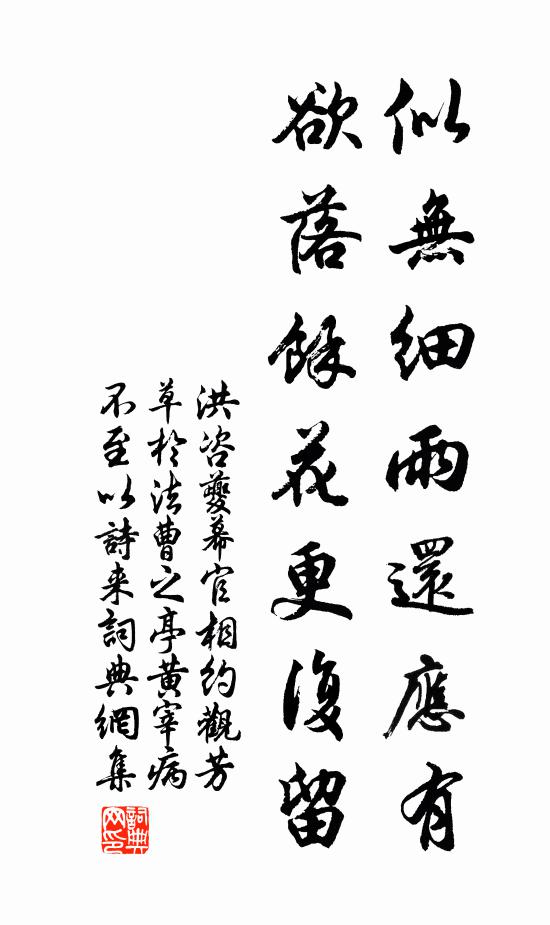 似無細雨還應有
欲落餘花更復留
洪咨夔幕官相約觀芳
草於法曹之亭黄宰病
不至以詩来詞典網集
詞典網印